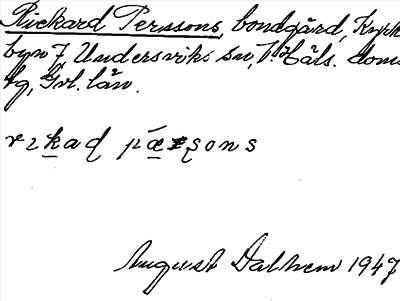 Rickard Perssons, bondgård, Kyrk
byn 7, Undersviks sn, V. Häls. doms
tg, Gvl. län.
rɩkad pæʂons
August Dalhem 1947